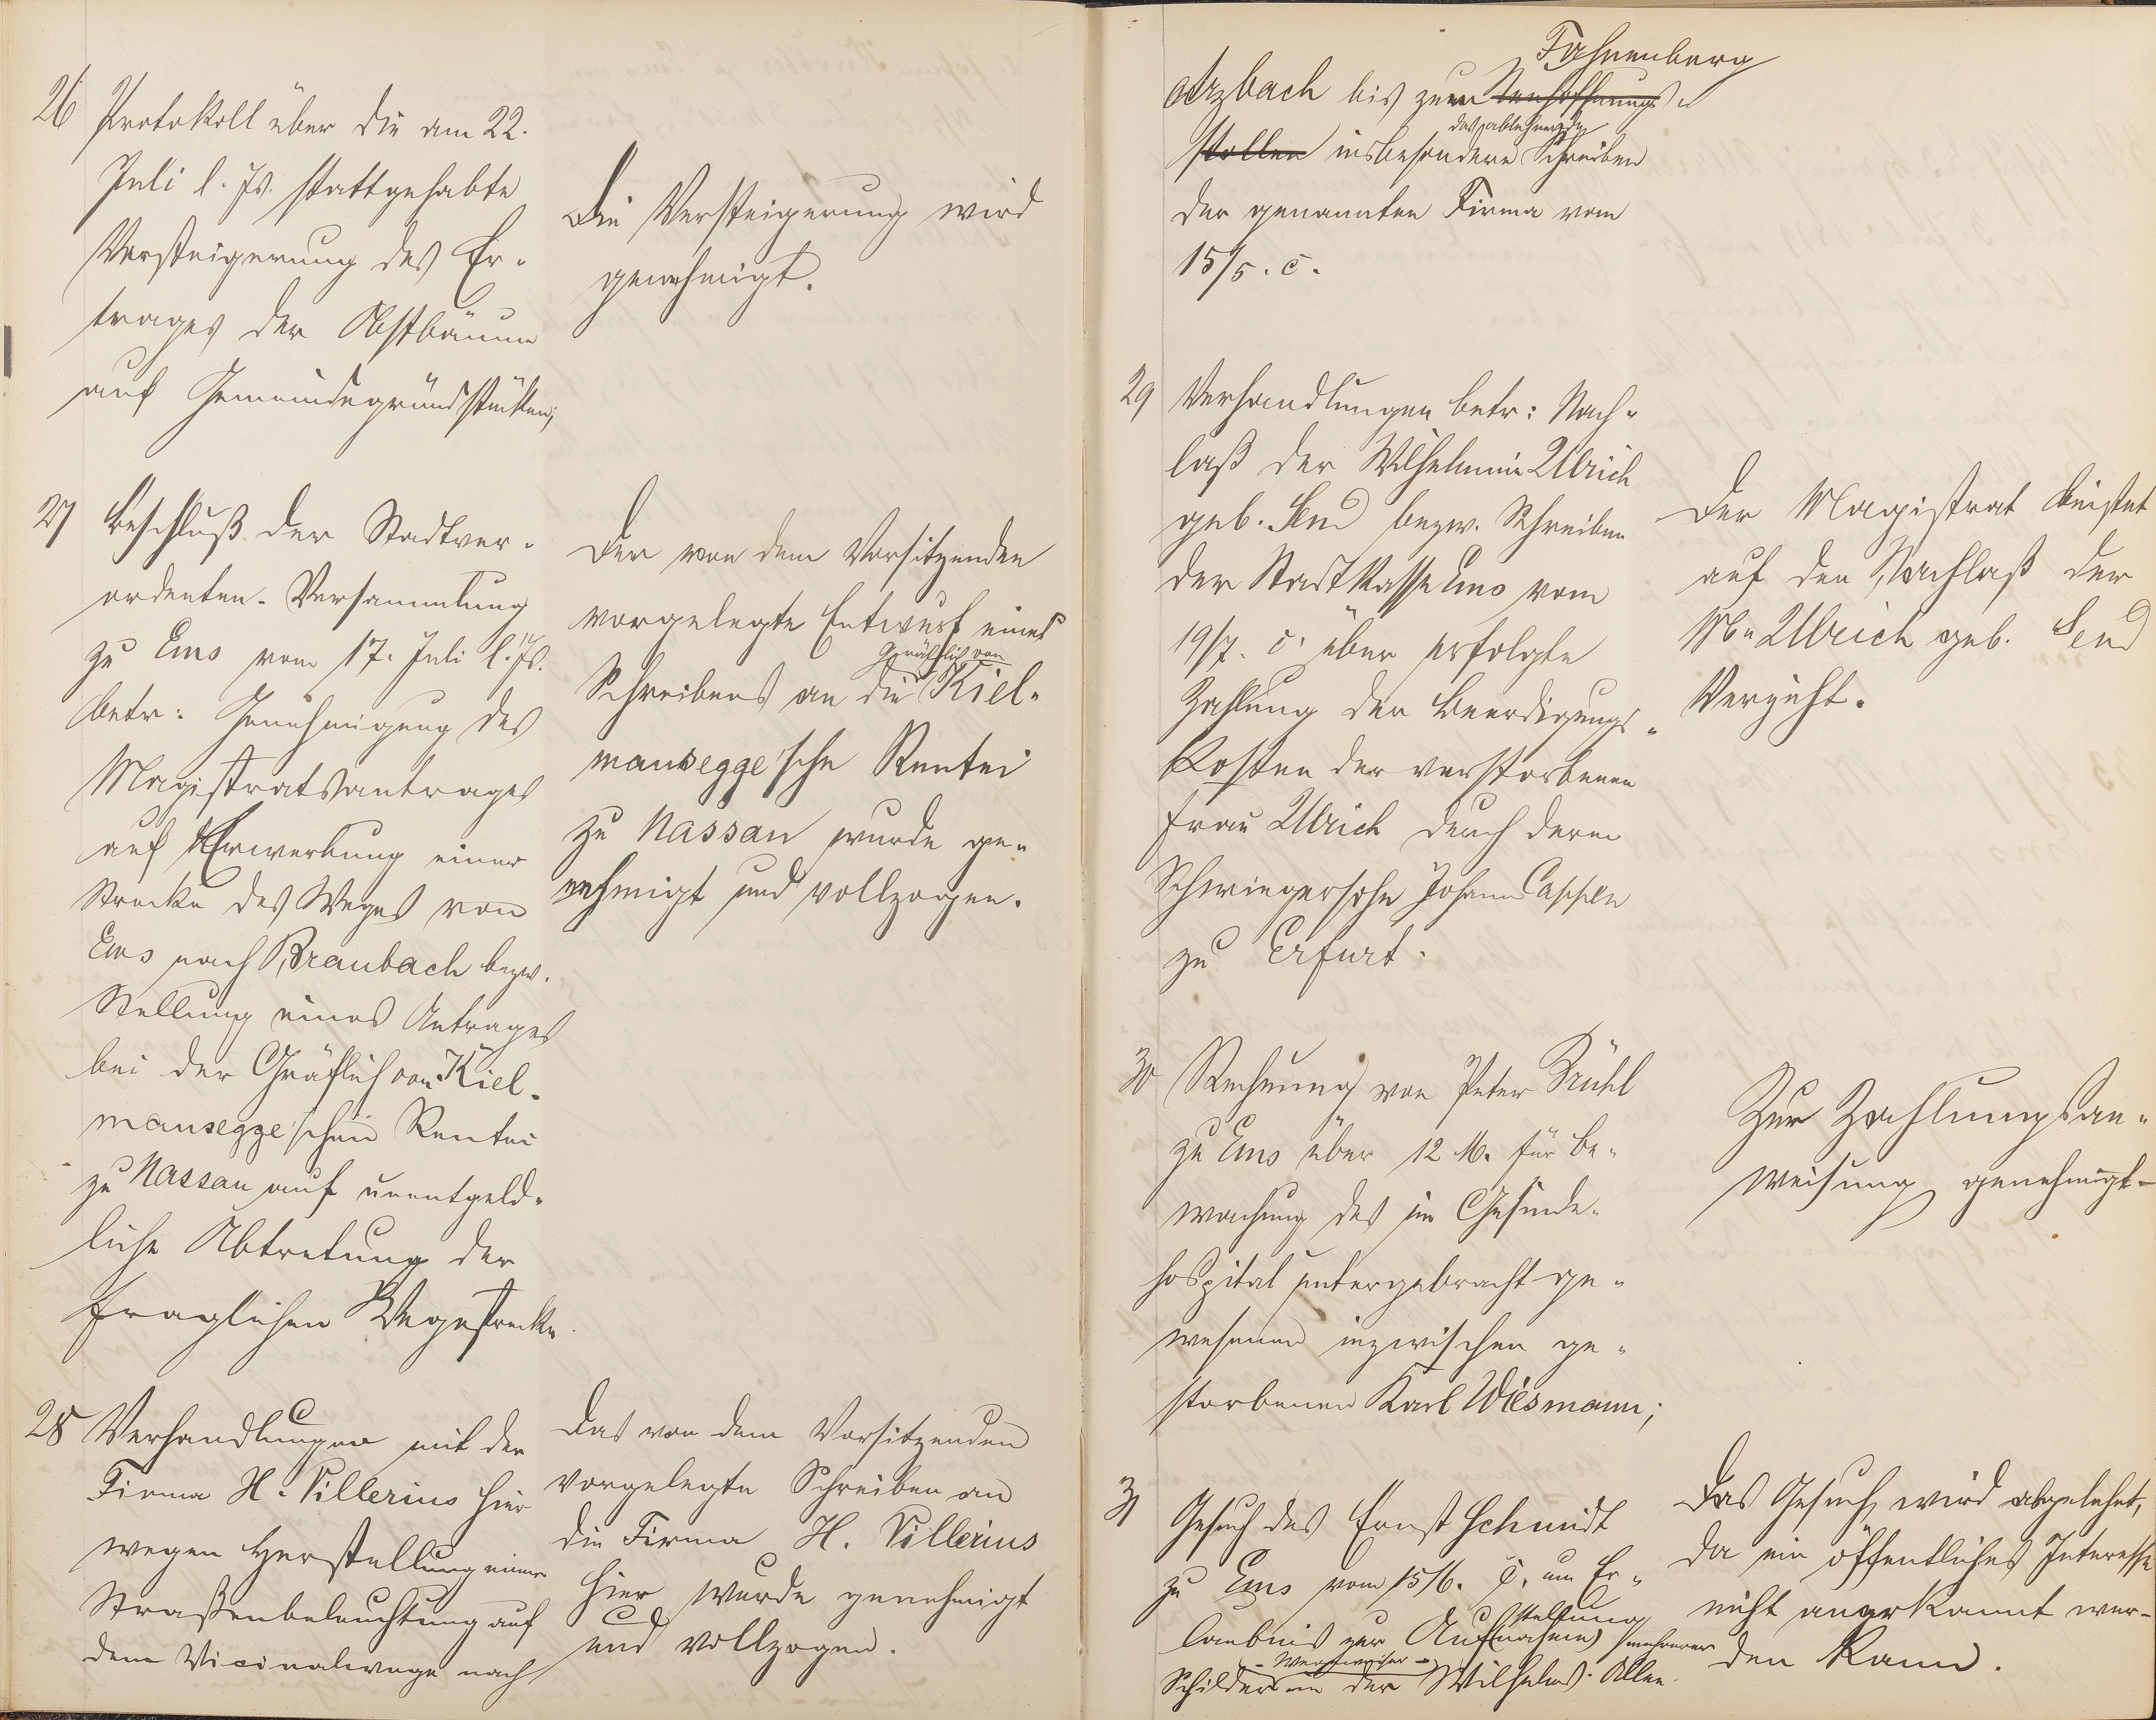 26 Protokoll über die am 22.
Juli l. Js. stattgehabte
Versteigerung des Er-
trages der Obstbäume
auf Gemeindegrundstücken;
Die Versteigerung wird
genehmigt.
27 Beschluß der Stadtver-
ordneten-Versammlung
zu Ems vom 17. Juli l. Js.
betr: Genehmigung des
Magistratsantrages
auf Erwerbung einer
Strecke des Weges von
Ems nach Braubach bezw.
Stellung eines Antrages
bei der Gräflich von Kiel-
mansegge'schen Rentei
zu Nassau auf unentgeld-
liche Abtretung der
fraglichen Wegestrecke
Der von dem Vorsitzenden
vorgelegte Entwurf eines
Gräflich von
Schreibens an die Kiel-
mansegge'sche Rentei
zu Nassau wurde ge-
nehmigt und vollzogen.
28 Verhandlungen mit der
Firma H. Villerius hier
wegen Herstellung einer
Straßenbeleuchtung auf
dem Vicinalwege nach
Das von dem Vorsitzenden
vorgelegte Schreiben an
die Firma H. Villerius
hier wurde genehmigt
und vollzogen.
Fahnenberg
Arzbach bis zum Neuhoffnungs-
das ablehnende
stollen insbesondere Schreiben
der genannten Firma vom
15/5. c.
29 Verhandlungen betr: Nach-
laß der Wilhelmine Ulrich
geb. Send bezw. Schreiben
der Stadtkasse Ems vom
19/7. c. über erfolgte
Zahlung der Beerdigungs-
kosten der verstorbenen
Frau Ulrich durch deren
Schwiegersohn Johann Cassen
zu Erfurt.
Der Magistrat leistet
auf den Nachlaß der
W. Ulrich geb. Send
Verzicht.
30 Rechnung von Peter Brühl
zu Ems über 12 M. für Be-
wachung des im Gesinde-
hospital untergebracht ge-
wesenen inzwischen ge-
storbenen Karl Wiesmann;
Zur Zahlungsan-
weisung genehmigt-
31 Gesuch des Ernst Schmidt
zu Ems vom 15/6. c. um Er-
stellung
laubnis zur Aufnahme mehrerer
- Wegweiser -
Schilder in der Wilhelms-Allee.
Das Gesuch wird abgelehnt,
da ein öffentliches Interesse
nicht anerkannt wer-
den kann.